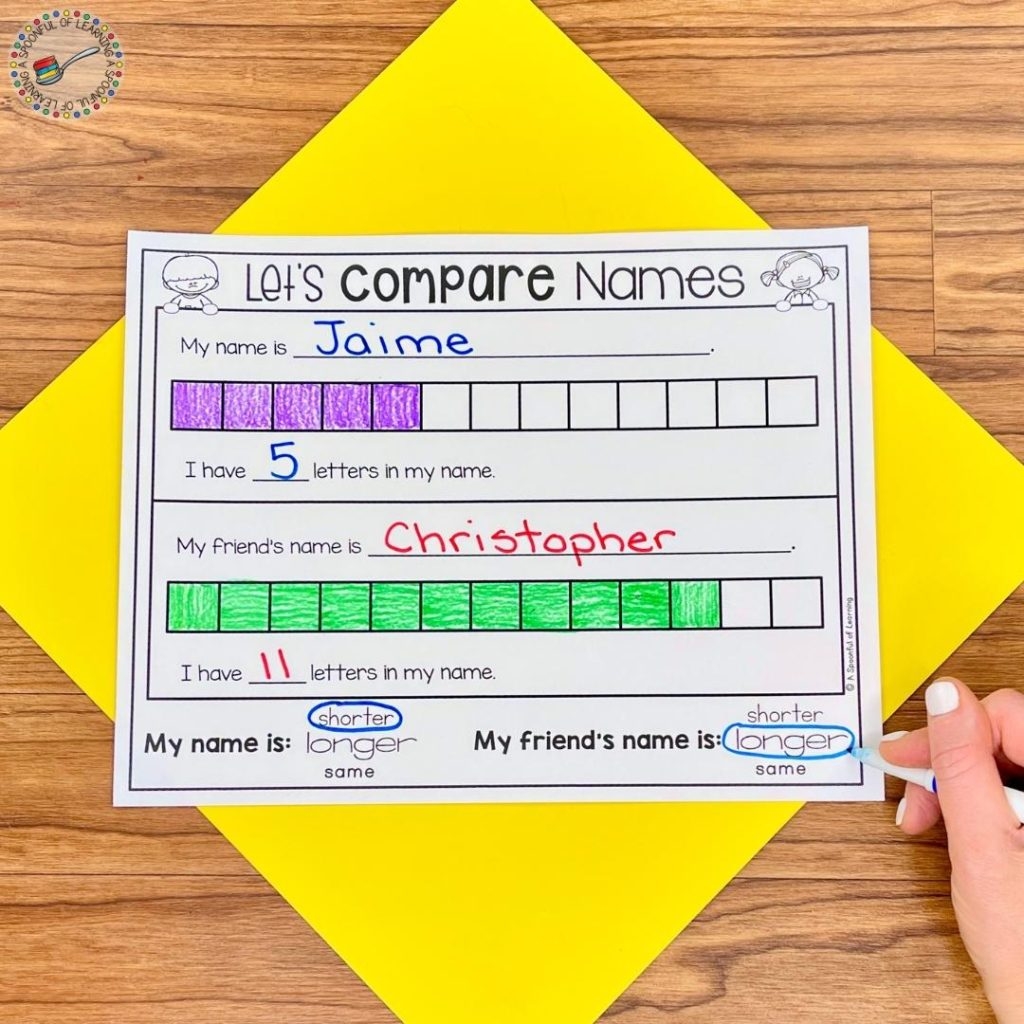 A SPOONFUL OF LEARNING A SPOONFUL OF LEARNING
Let's Compare Names
My name is Jaime.
I have 5 letters in my name.
My friend's name is Christopher.
I have 11 letters in my name.
© A Spoonful of Learning
shorter
My name is: longer
same
shorter
My friend's name is: longer
same